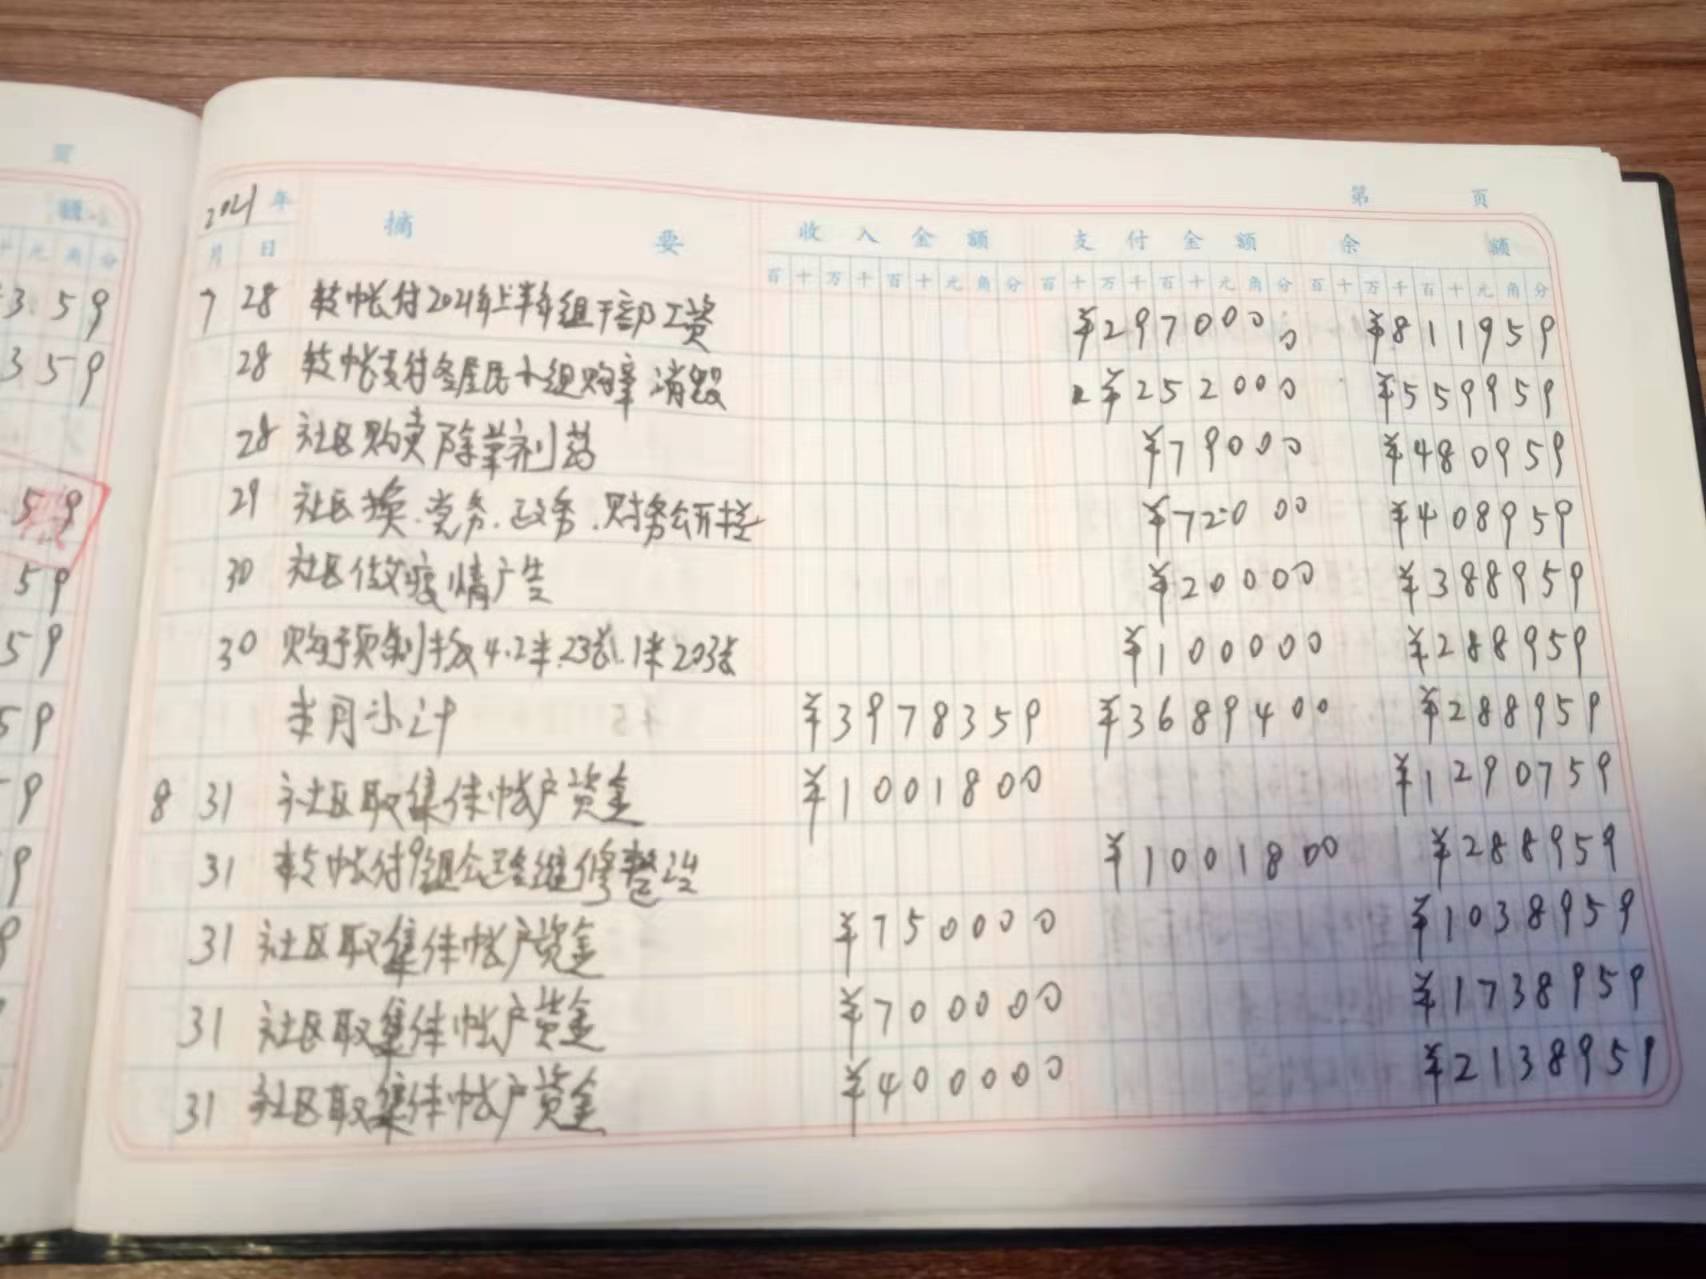 页
额
十元角分
3 5 9
3 5 9
5 9
5 9
5 9
5 9
9
9
第 页
2021年 摘要 收入金额 支付金额 余额
月 日 百十万千百十元角分 百十万千百十元角分 百十万千百十元角分
7 28 转帐付2021年上半年组干部工资 ¥2970000 ¥811959
28 转帐支付各居民小组购 消毁 ¥252000 ¥559959
28 社区购卖除草剂药 ¥79000 ¥480959
29 社区换.党务.政务.财务公开栏 ¥72000 ¥408959
30 社区做疫情广告 ¥20000 ¥388959
30 购预制板4.2米.23张.1米203张 ¥100000 ¥288959
本月小计 ¥3978359 ¥3689400 ¥288959
8 31 社区取集体帐户资金 ¥1001800 ¥1290759
31 转帐付9组公路维修整改 ¥1001800 ¥288959
31 社区取集体帐户资金 ¥750000 ¥1038959
31 社区取集体帐户资金 ¥700000 ¥1738959
31 社区取集体帐户资金 ¥400000 ¥2138959